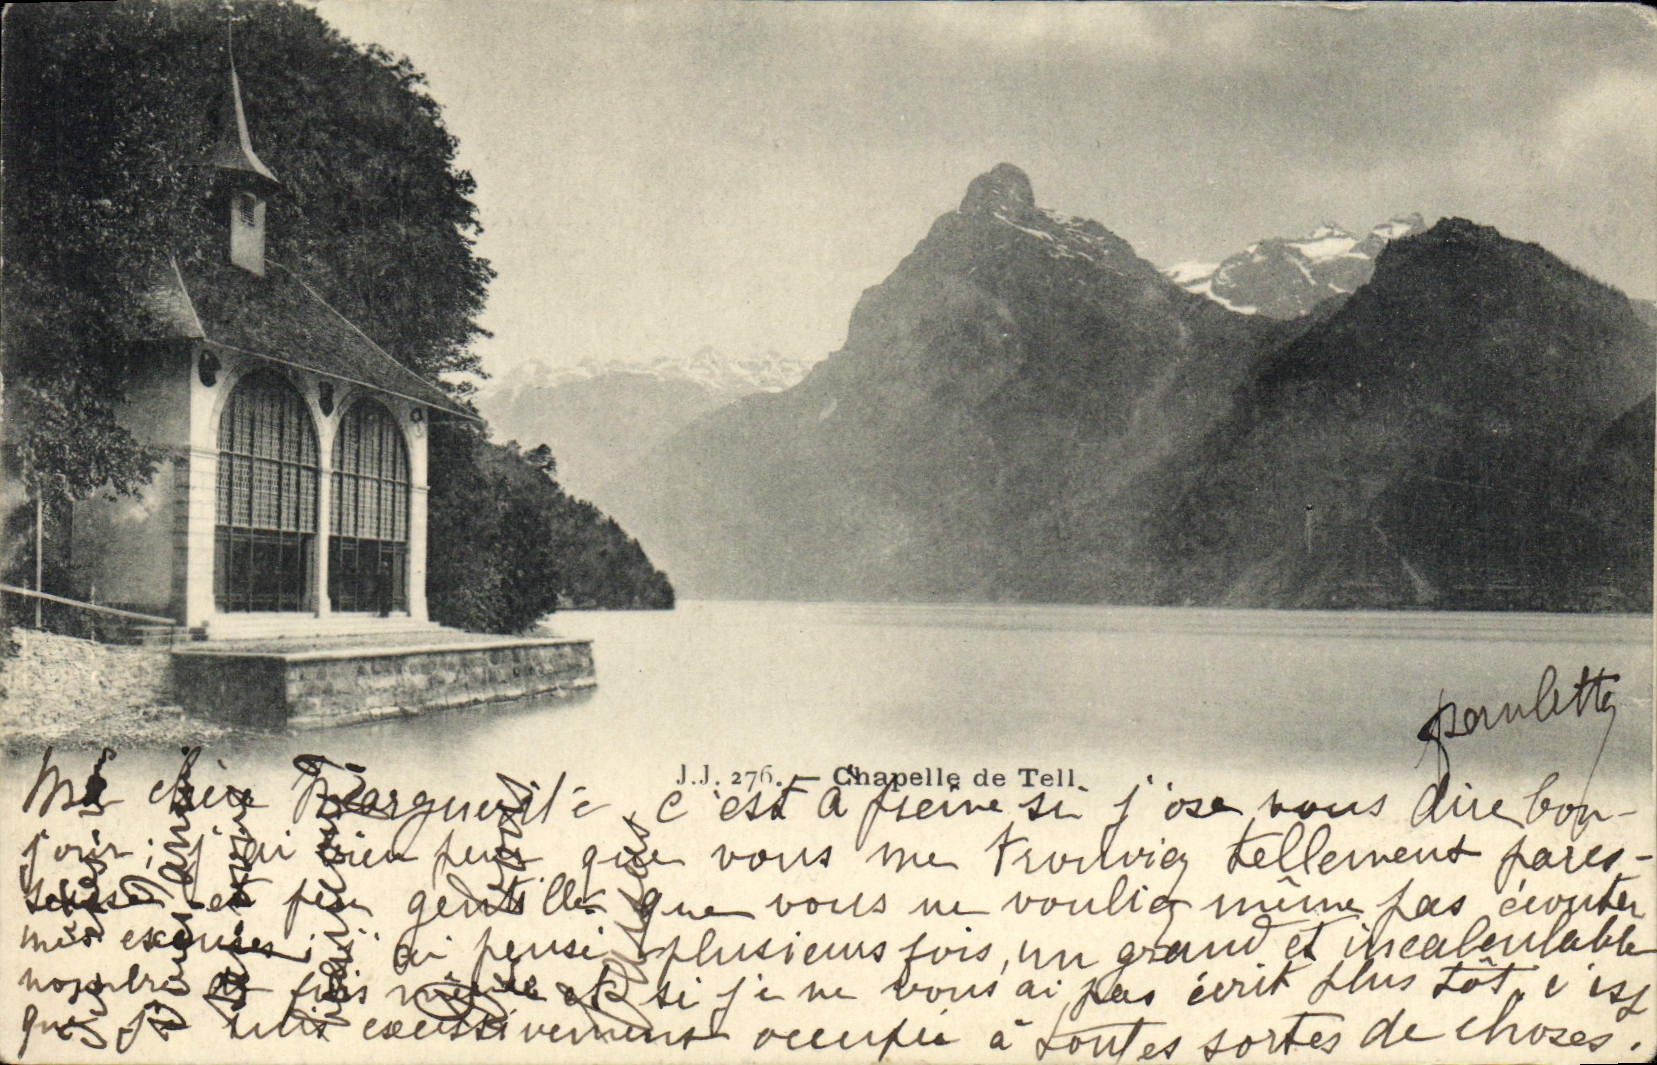 paulette
J.J. 276. — Chapelle de Tell.
Ma chère Marguerite, c'est à peine si j'ose vous dire bon-
jour; j'ai bien peur que vous me trouviez tellement pares-
seuse et peu gentille que vous ne vouliez même pas écouter
mes excuses; j'ai pensé plusieurs fois, un grand et incalculable
nombre de fois même et si je ne vous ai pas écrit plus tôt, c'est
que je suis excessivement occupée à toutes sortes de choses.